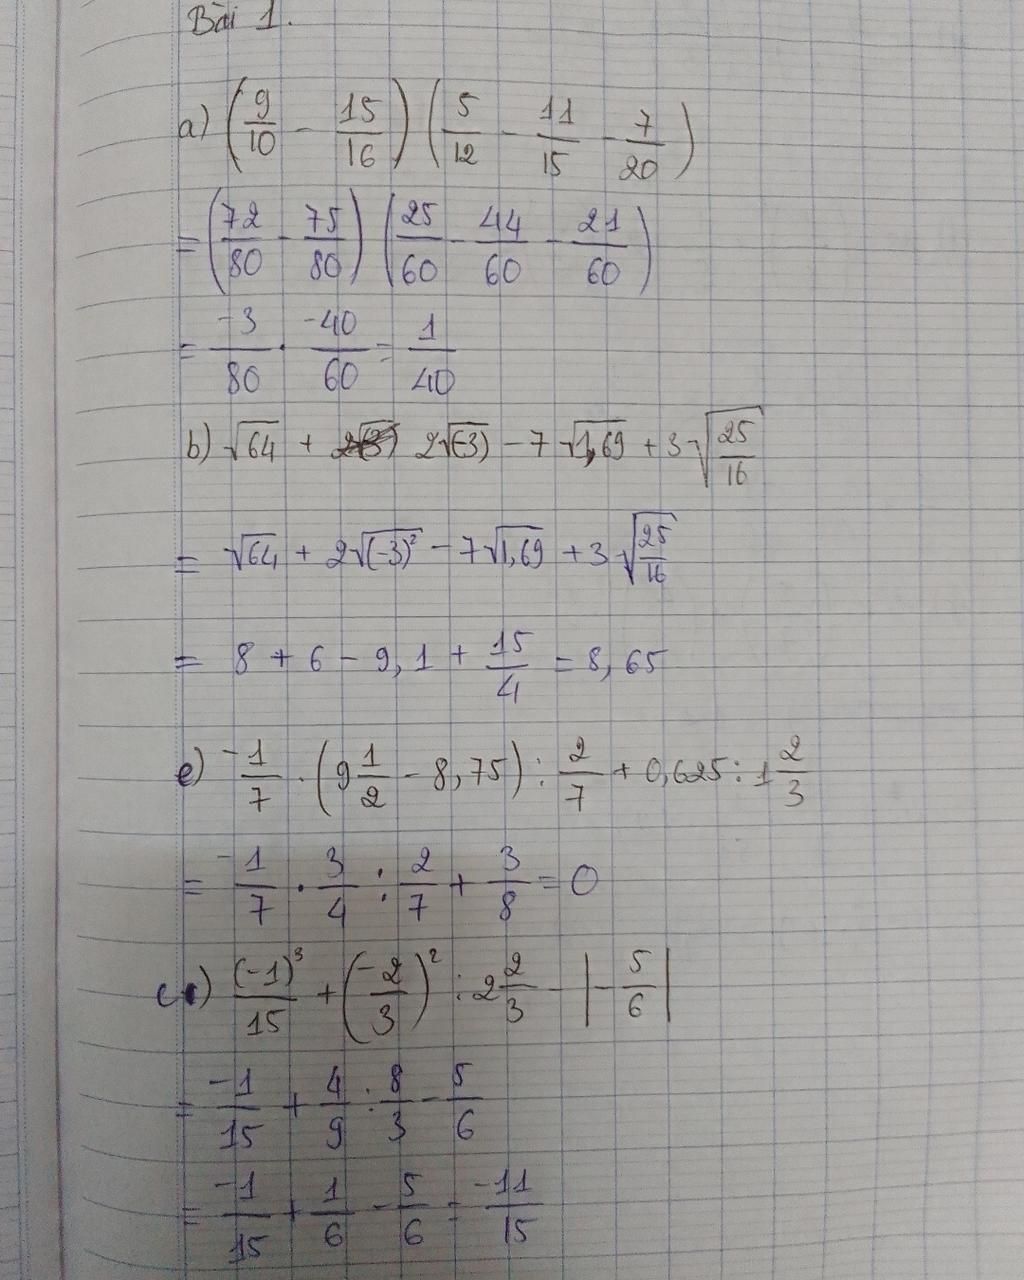 Bài 1.
a) (9/10 - 15/16) (5/12 - 11/15 - 7/20)
= (72/80 - 75/80) (25/60 - 44/60 - 21/60)
= -3/80 . -40/60 = 1/40
b) √64 + 2√(-3) - 7√1,69 + 3√(25/16)
= √64 + 2√(-3)² - 7√1,69 + 3√(25/16)
= 8 + 6 - 9,1 + 15/4 = 8,65
e) -1/7 . (9 1/2 - 8,75) : 2/7 + 0,625 : 1 2/3
= -1/7 . 3/4 : 2/7 + 3/8 = 0
c) (-1)³/15 + (-2/3)² : 2 2/3 - |-5/6|
= -1/15 + 4/9 : 8/3 - 5/6
= -1/15 + 1/6 - 5/6 = -11/15